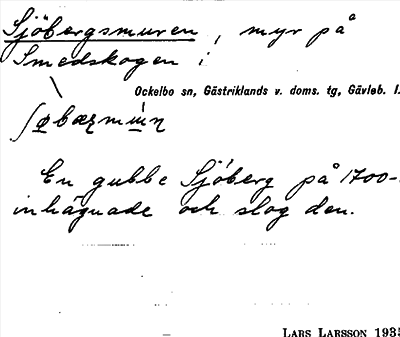 Sjöbergsmuren, myr på
Smedskogen i
Ockelbo sn, Gästriklands v. doms. tg, Gävleb. l.
En gubbe Sjöberg på 1700-
inhägnade och slog den.
LARS LARSSON 1935